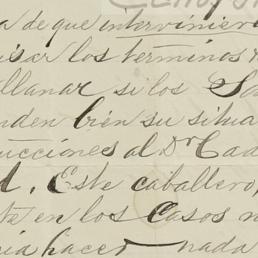 a de que interviniera
isar los terminos d
llanar si los Sa
nden bien su situa
ucciones al Dr Cad
d. Este caballero,
te en los casos n
ria hacer nada